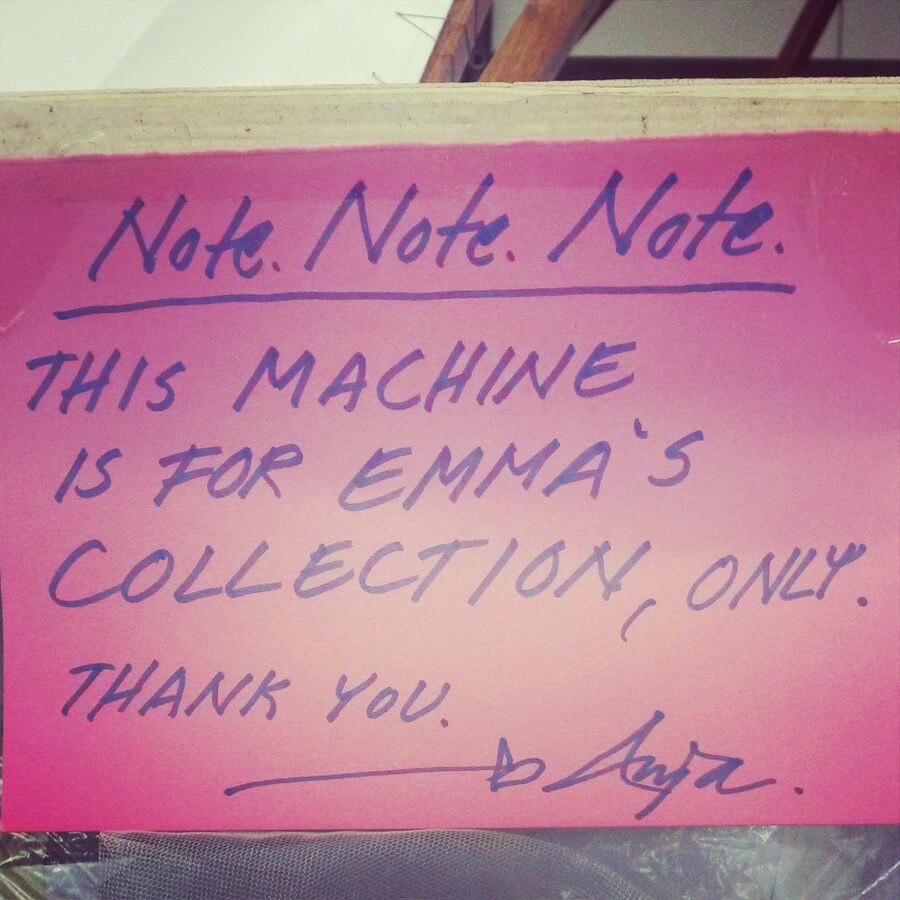 Note. Note. Note.
THIS MACHINE
IS FOR EMMA'S
COLLECTION, ONLY.
THANK YOU.
Anja.